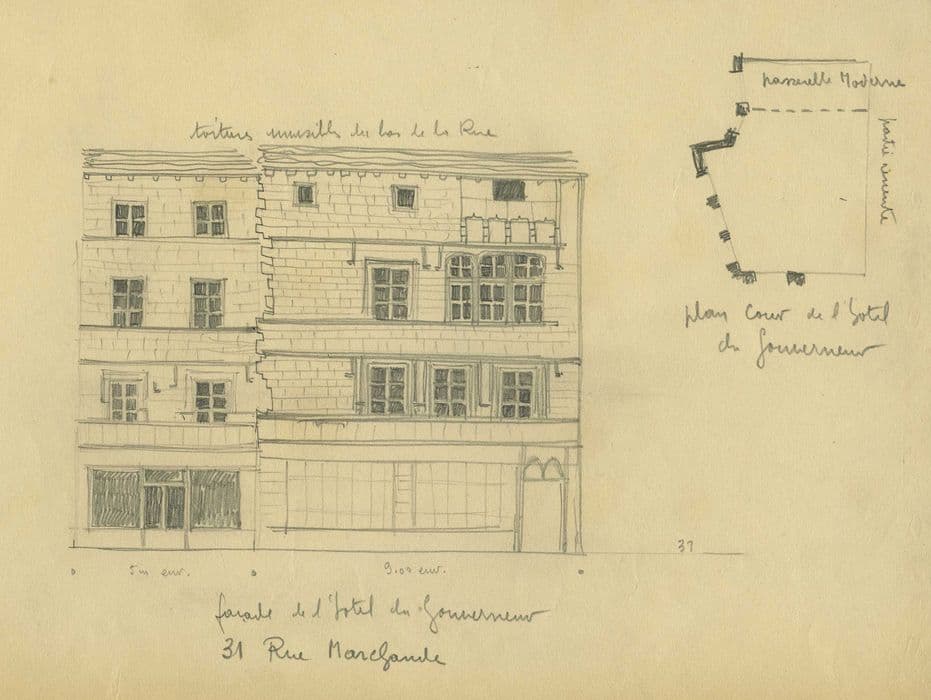 toitures invisibles du bas de la Rue
passerelle Moderne
partie récente
plan Cour de l'Hotel
du Gouverneur
31
5m env.
9.00 env.
façade de l'Hotel du Gouverneur
31 Rue Marchande